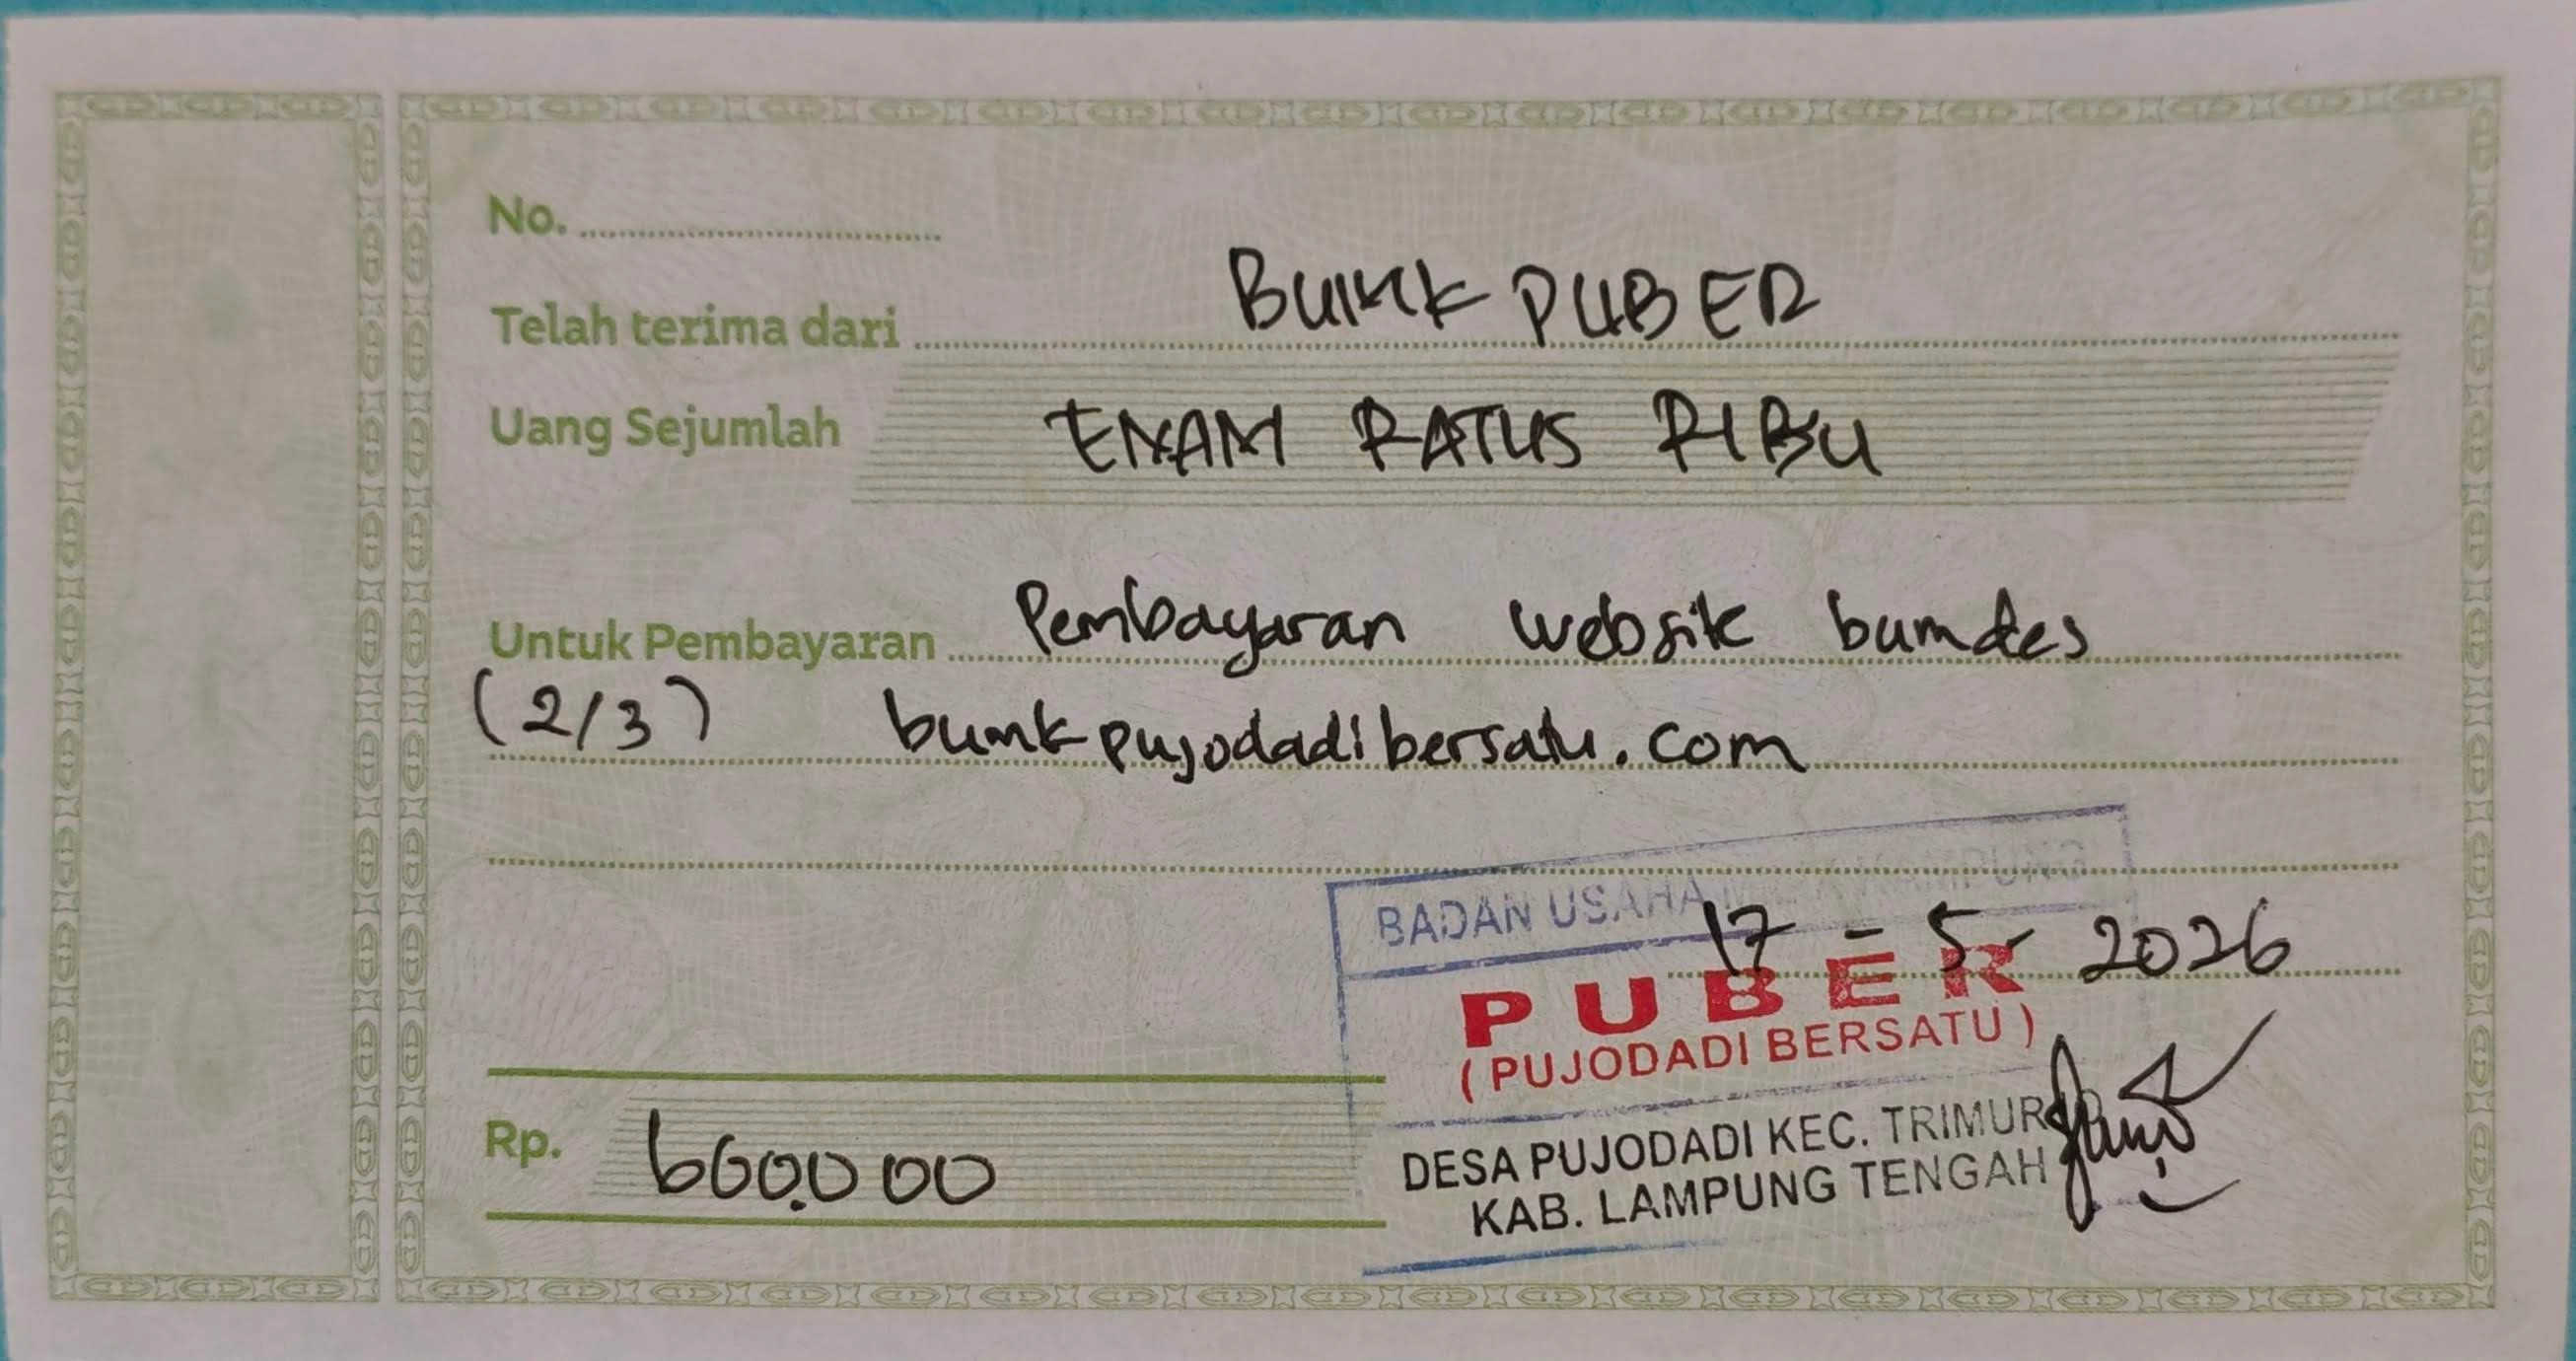 No.
Telah terima dari BUMK PUBER
Uang Sejumlah ENAM RATUS RIBU
Untuk Pembayaran Pembayaran website bumdes
(2/3) bumkpujodadibersatu.com
BADAN USAHA KAMPUNG
17 - 5 - 2026
PUBER
(PUJODADI BERSATU)
DESA PUJODADI KEC. TRIMURJO
KAB. LAMPUNG TENGAH
Rp. 600.000